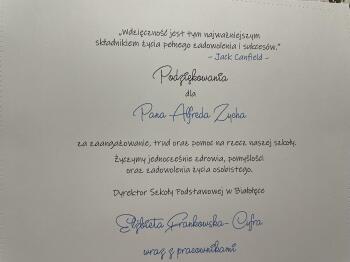 „Wdzięczność jest tym najważniejszym
składnikiem życia pełnego zadowolenia i sukcesów."
- Jack Canfield -
Podziękowania
dla
Pana Alfreda Zycha
za zaangażowanie, trud oraz pomoc na rzecz naszej szkoły.
Życzymy jednocześnie zdrowia, pomyślności
oraz zadowolenia życia osobistego.
Dyrektor Szkoły Podstawowej w Białołęce
Elżbieta Frankowska-Cyfra
wraz z pracownikami